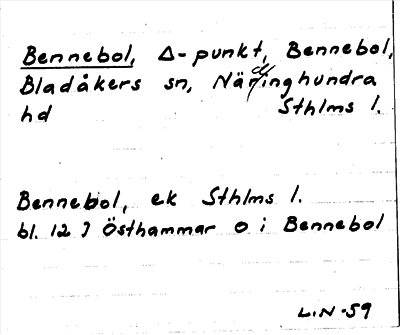 Bennebol, Δ-punkt, Bennebol,
Bladåkers sn, Närdinghundra
hd Sthlms l.
Bennebol, ek Sthlms l.
bl. 12 J Östhammar o i Bennebol
L.N-59